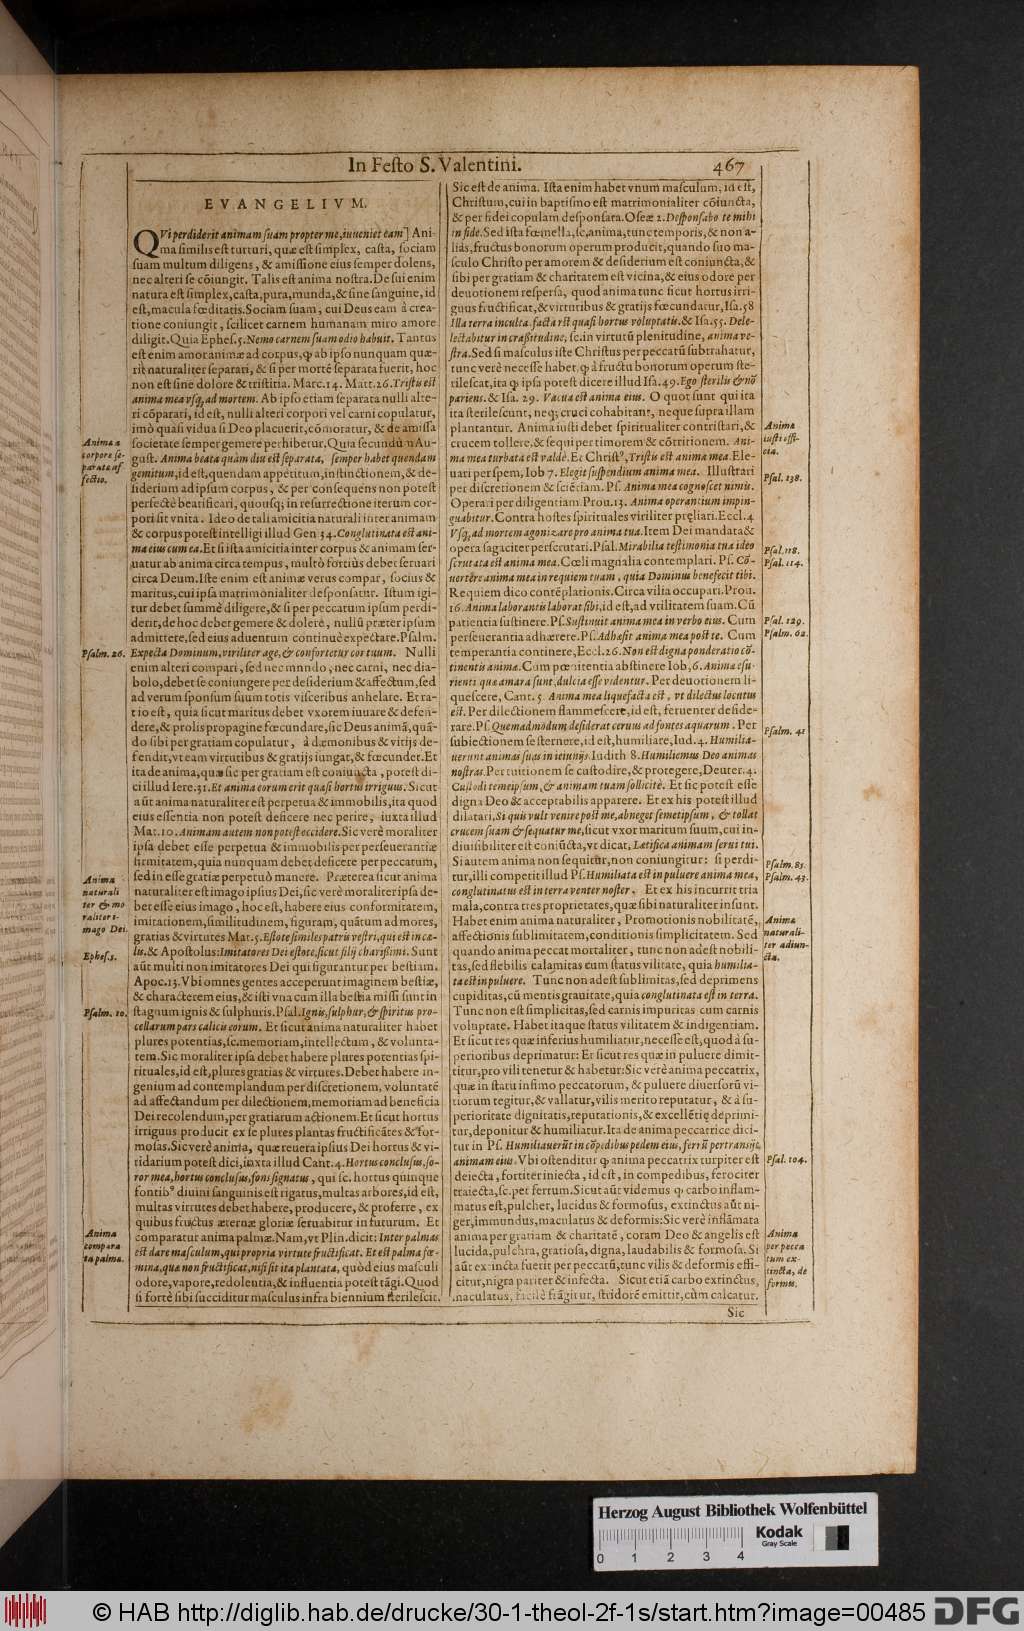 In Festo S. Valentini. 467
EVANGELIVM.
QVi perdiderit animam suam propter me, inueniet eam] Ani-
ma similis est turturi, quæ est simplex, casta, sociam
suam multum diligens, & amissione eius semper dolens,
nec alteri se cōiungit. Talis est anima nostra. De sui enim
natura est simplex, casta, pura, munda, & sine sanguine, id
est, macula fœditatis. Sociam suam, cui Deus eam à crea-
tione coniungit, scilicet carnem humanam miro amore
diligit. Quia Ephes. 5. Nemo carnem suam odio habuit. Tantus
est enim amor animæ ad corpus, ꝙ ab ipso nunquam quæ-
rit naturaliter separari, & si per mortē separata fuerit, hoc
non est sine dolore & tristitia. Marc. 14. Matt. 26. Tristis est
anima mea vsq; ad mortem. Ab ipso etiam separata nulli alte-
ri cōparari, id est, nulli alteri corpori vel carni copulatur,
imò quasi vidua si Deo placuerit, cōmoratur, & de amissa
societate semper gemere perhibetur. Quia secundùm Au-
gust. Anima beata quàm diu est separata, semper habet quendam
gemitum, id est, quendam appetitum, instinctionem, & de-
siderium ad ipsum corpus, & per consequens non potest
perfectè beatificari, quousq; in resurrectione iterum cor-
pori sit vnita. Ideo de tali amicitia naturali inter animam
& corpus potest intelligi illud Gen. 34. Conglutinata est ani-
ma eius cum ea. Et si ista amicitia inter corpus & animam ser-
uatur ab anima circa tempus, multò fortiùs debet seruari
circa Deum. Iste enim est animæ verus compar, socius &
maritus, cui ipsa matrimonialiter desponsatur. Istum igi-
tur debet summè diligere, & si per peccatum ipsum perdi-
derit, de hoc debet gemere & dolere, nullū præter ipsum
admittere, sed eius aduentum continuè expectare. Psalm.
Expecta Dominum, viriliter age, & confortetur cor tuum. Nulli
enim alteri compari, sed nec mundo, nec carni, nec dia-
bolo, debet se coniungere per desiderium & affectum, sed
ad verum sponsum suum totis visceribus anhelare. Et ra-
tio est, quia sicut maritus debet vxorem iuuare & defen-
dere, & prolis propagine fœcundare, sic Deus animā, quā-
do sibi per gratiam copulatur, à dæmonibus & vitijs de-
fendit, vt eam virtutibus & gratijs iungat, & fœcundet. Et
ita de anima, quæ sic per gratiam est coniuncta, potest di-
ci illud Iere. 31. Et anima eorum erit quasi hortus irriguus. Sicut
aūt anima naturaliter est perpetua & immobilis, ita quod
eius essentia non potest deficere nec perire, iuxta illud
Mat. 10. Animam autem non potest occidere. Sic verè moraliter
ipsa debet esse perpetua & immobilis per perseuerantiæ
firmitatem, quia nunquam debet deficere per peccatum,
sed in esse gratiæ perpetuò manere. Præterea sicut anima
naturaliter est imago ipsius Dei, sic verè moraliter ipsa de-
bet esse eius imago, hoc est, habere eius conformitatem,
imitationem, similitudinem, figuram, quātum ad mores,
gratias & virtutes Mat. 5. Estote similes patris vestri, qui est in cæ-
lis. & Apostolus: Imitatores Dei estote, sicut filij charissimi. Sunt
aūt multi non imitatores Dei qui figurantur per bestiam.
Apoc. 13. Vbi omnes gentes acceperunt imaginem bestiæ,
& characterem eius, & isti vna cum illa bestia missi sunt in
stagnum ignis & sulphuris. Psal. Ignis, sulphur, & spiritus pro-
cellarum pars calicis eorum. Et sicut anima naturaliter habet
plures potentias, sc. memoriam, intellectum, & volunta-
tem. Sic moraliter ipsa debet habere plures potentias spi-
rituales, id est, plures gratias & virtutes. Debet habere in-
genium ad contemplandum per discretionem, voluntatē
ad affectandum per dilectionem, memoriam ad beneficia
Dei recolendum, per gratiarum actionem. Et sicut hortus
irriguus producit ex se plures plantas fructificātes & for-
mosas. Sic verè anima, quæ reuera ipsius Dei hortus & vi-
ridarium potest dici, iuxta illud Cant. 4. Hortus conclusus, so-
ror mea, hortus conclusus, fons signatus, qui sc. hortus quinque
fontibꝰ diuini sanguinis est rigatus, multas arbores, id est,
multas virtutes debet habere, producere, & proferre, ex
quibus fructus æternæ gloriæ seruabitur in futurum. Et
comparatur anima palmæ. Nam, vt Plin. dicit: Inter palmas
est dare masculum, qui propria virtute fructificat. Et est palma fœ-
mina, quæ non fructificat, nisi sit ita plantata, quòd eius masculi
odore, vapore, redolentia, & influentia potest tāgi. Quod
si fortè sibi succiditur masculus infra biennium sterilescit.
Anima a
corpore se-
parata af-
fectio.
Psalm. 26.
Anima
naturali
ter & mo
raliter i-
mago Dei.
Ephes. 5.
Psalm. 10.
Anima
compara
ta palmæ.
Sic est de anima. Ista enim habet vnum masculum, id est,
Christum, cui in baptismo est matrimonialiter cōiuncta,
& per fidei copulam desponsata. Oseæ 2. Desponsabo te mihi
in fide. Sed ista fœmella, sc. anima, tunc temporis, & non a-
liâs, fructus bonorum operum producit, quando suo ma-
sculo Christo per amorem & desiderium est coniuncta, &
sibi per gratiam & charitatem est vicina, & eius odore per
deuotionem respersa, quod anima tunc sicut hortus irri-
guus fructificat, & virtutibus & gratijs fœcundatur, Isa. 58
Illa terra inculta facta est quasi hortus voluptatis. & Isa. 55. Dele-
lectabitur in crassitudine, sc. in virtutū plenitudine, anima ve-
stra. Sed si masculus iste Christus per peccatū subtrahatur,
tunc verè necesse habet, ꝙ à fructu bonorum operum ste-
rilescat, ita ꝙ ipsa potest dicere illud Isa. 49. Ego sterilis & nō
pariens. & Isa. 29. Vacua est anima eius. O quot sunt qui ita
ita sterilescunt, neq; cruci cohabitant, neque supra illam
plantantur. Anima iusti debet spiritualiter contristari, &
crucem tollere, & sequi per timorem & cōtritionem. Ani-
ma mea turbata est valdè. Et Christꝰ, Tristis est anima mea. Ele-
uari per spem, Iob 7. Elegit suspendium anima mea. Illustrari
per discretionem & sciētiam. Ps. Anima mea cognoscet nimis.
Operari per diligentiam. Prou. 13. Anima operantium impin-
guabitur. Contra hostes spirituales viriliter pręliari. Eccl. 4
Vsq; ad mortem agonizare pro anima tua. Item Dei mandata &
opera sagaciter perscrutari. Psal. Mirabilia testimonia tua ideo
scrutata est anima mea. Cœli magnalia contemplari. Ps. Cō-
uertere anima mea in requiem tuam, quia Dominus benefecit tibi.
Requiem dico contēplationis. Circa vilia occupari. Prou.
16. Anima laborantis laborat sibi, id est, ad vtilitatem suam. Cū
patientia sustinere. Ps. Sustinuit anima mea in verbo eius. Cum
perseuerantia adhærere. Ps. Adhæsit anima mea post te. Cum
temperantia continere, Eccl. 26. Non est digna ponderatio cō-
tinentis animæ. Cum pœnitentia abstinere Iob, 6. Animæ esu-
rienti quæ amara sunt, dulcia esse videntur. Per deuotionem li-
quescere, Cant. 5. Anima mea liquefacta est, vt dilectus locutus
est. Per dilectionem flammescere, id est, feruenter deside-
rare. Ps. Quemadmodum desiderat ceruus ad fontes aquarum. Per
subiectionem se sternere, id est, humiliare, Iud. 4. Humilia-
uerunt animas suas in ieiunijs. Iudith 8. Humiliemus Deo animas
nostras. Per tuitionem se custodire, & protegere, Deuter. 4.
Custodi temetipsum, & animam tuam sollicitè. Et sic potest esse
digna Deo & acceptabilis apparere. Et ex his potest illud
dilatari, Si quis vult venire post me, abneget semetipsum, & tollat
crucem suam & sequatur me, sicut vxor maritum suum, cui in-
diuisibiliter est coniūcta, vt dicat, Lætifica animam serui tui.
Si autem anima non sequitur, non coniungitur: si perdi-
tur, illi competit illud Ps. Humiliata est in puluere anima mea,
conglutinatus est in terra venter noster. Et ex his incurrit tria
mala, contra tres proprietates, quæ sibi naturaliter insunt.
Habet enim anima naturaliter, Promotionis nobilitatē,
affectionis sublimitatem, conditionis simplicitatem. Sed
quando anima peccat mortaliter, tunc non adest nobili-
tas, sed flebilis calamitas cum status vilitate, quia humilia-
ta est in puluere. Tunc non adest sublimitas, sed deprimens
cupiditas, cū mentis grauitate, quia conglutinata est in terra.
Tunc non est simplicitas, sed carnis impuritas cum carnis
voluptate. Habet itaque status vilitatem & indigentiam.
Et sicut res quæ inferius humiliatur, necesse est, quod à su-
perioribus deprimatur: Et sicut res quæ in puluere dimit-
titur, pro vili tenetur & habetur: Sic verè anima peccatrix,
quæ in statu infimo peccatorum, & puluere diuersorū vi-
tiorum tegitur, & vallatur, vilis merito reputatur, & à su-
perioritate dignitatis, reputationis, & excellētię deprimi-
tur, deponitur & humiliatur. Ita de anima peccatrice dici-
tur in Ps. Humiliauerūt in cōpedibus pedem eius, ferrū pertransijt
animam eius. Vbi ostenditur ꝙ anima peccatrix turpiter est
deiecta, fortiter iniecta, id est, in compedibus, ferociter
traiecta, sc. per ferrum. Sicut aūt videmus ꝙ carbo inflam-
matus est, pulcher, lucidus & formosus, extinctus aūt ni-
ger, immundus, maculatus & deformis: Sic verè inflāmata
anima per gratiam & charitatē, coram Deo & angelis est
lucida, pulchra, gratiosa, digna, laudabilis & formosa. Si
aūt extincta fuerit per peccatū, tunc vilis & deformis effi-
citur, nigra pariter & infecta. Sicut etiā carbo extinctus,
maculatus, facilè frāgitur, stridorē emittit, cùm calcatur.
Sic
Anima
iusti effi-
cta.
Psal. 138.
Psal. 118.
Psal. 114.
Psal. 129.
Psalm. 62.
Psalm. 41
Psalm. 85.
Psalm. 43.
Anima
naturali-
ter adiun-
cta.
Psal. 104.
Anima
per pecca
tum ex-
tincta, de
formis.
Herzog August Bibliothek Wolfenbüttel
0 1 2 3 4
Kodak
Gray Scale
© HAB http://diglib.hab.de/drucke/30-1-theol-2f-1s/start.htm?image=00485
DFG